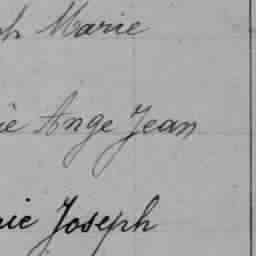 ph Marie
ie Ange Jean
rie Joseph